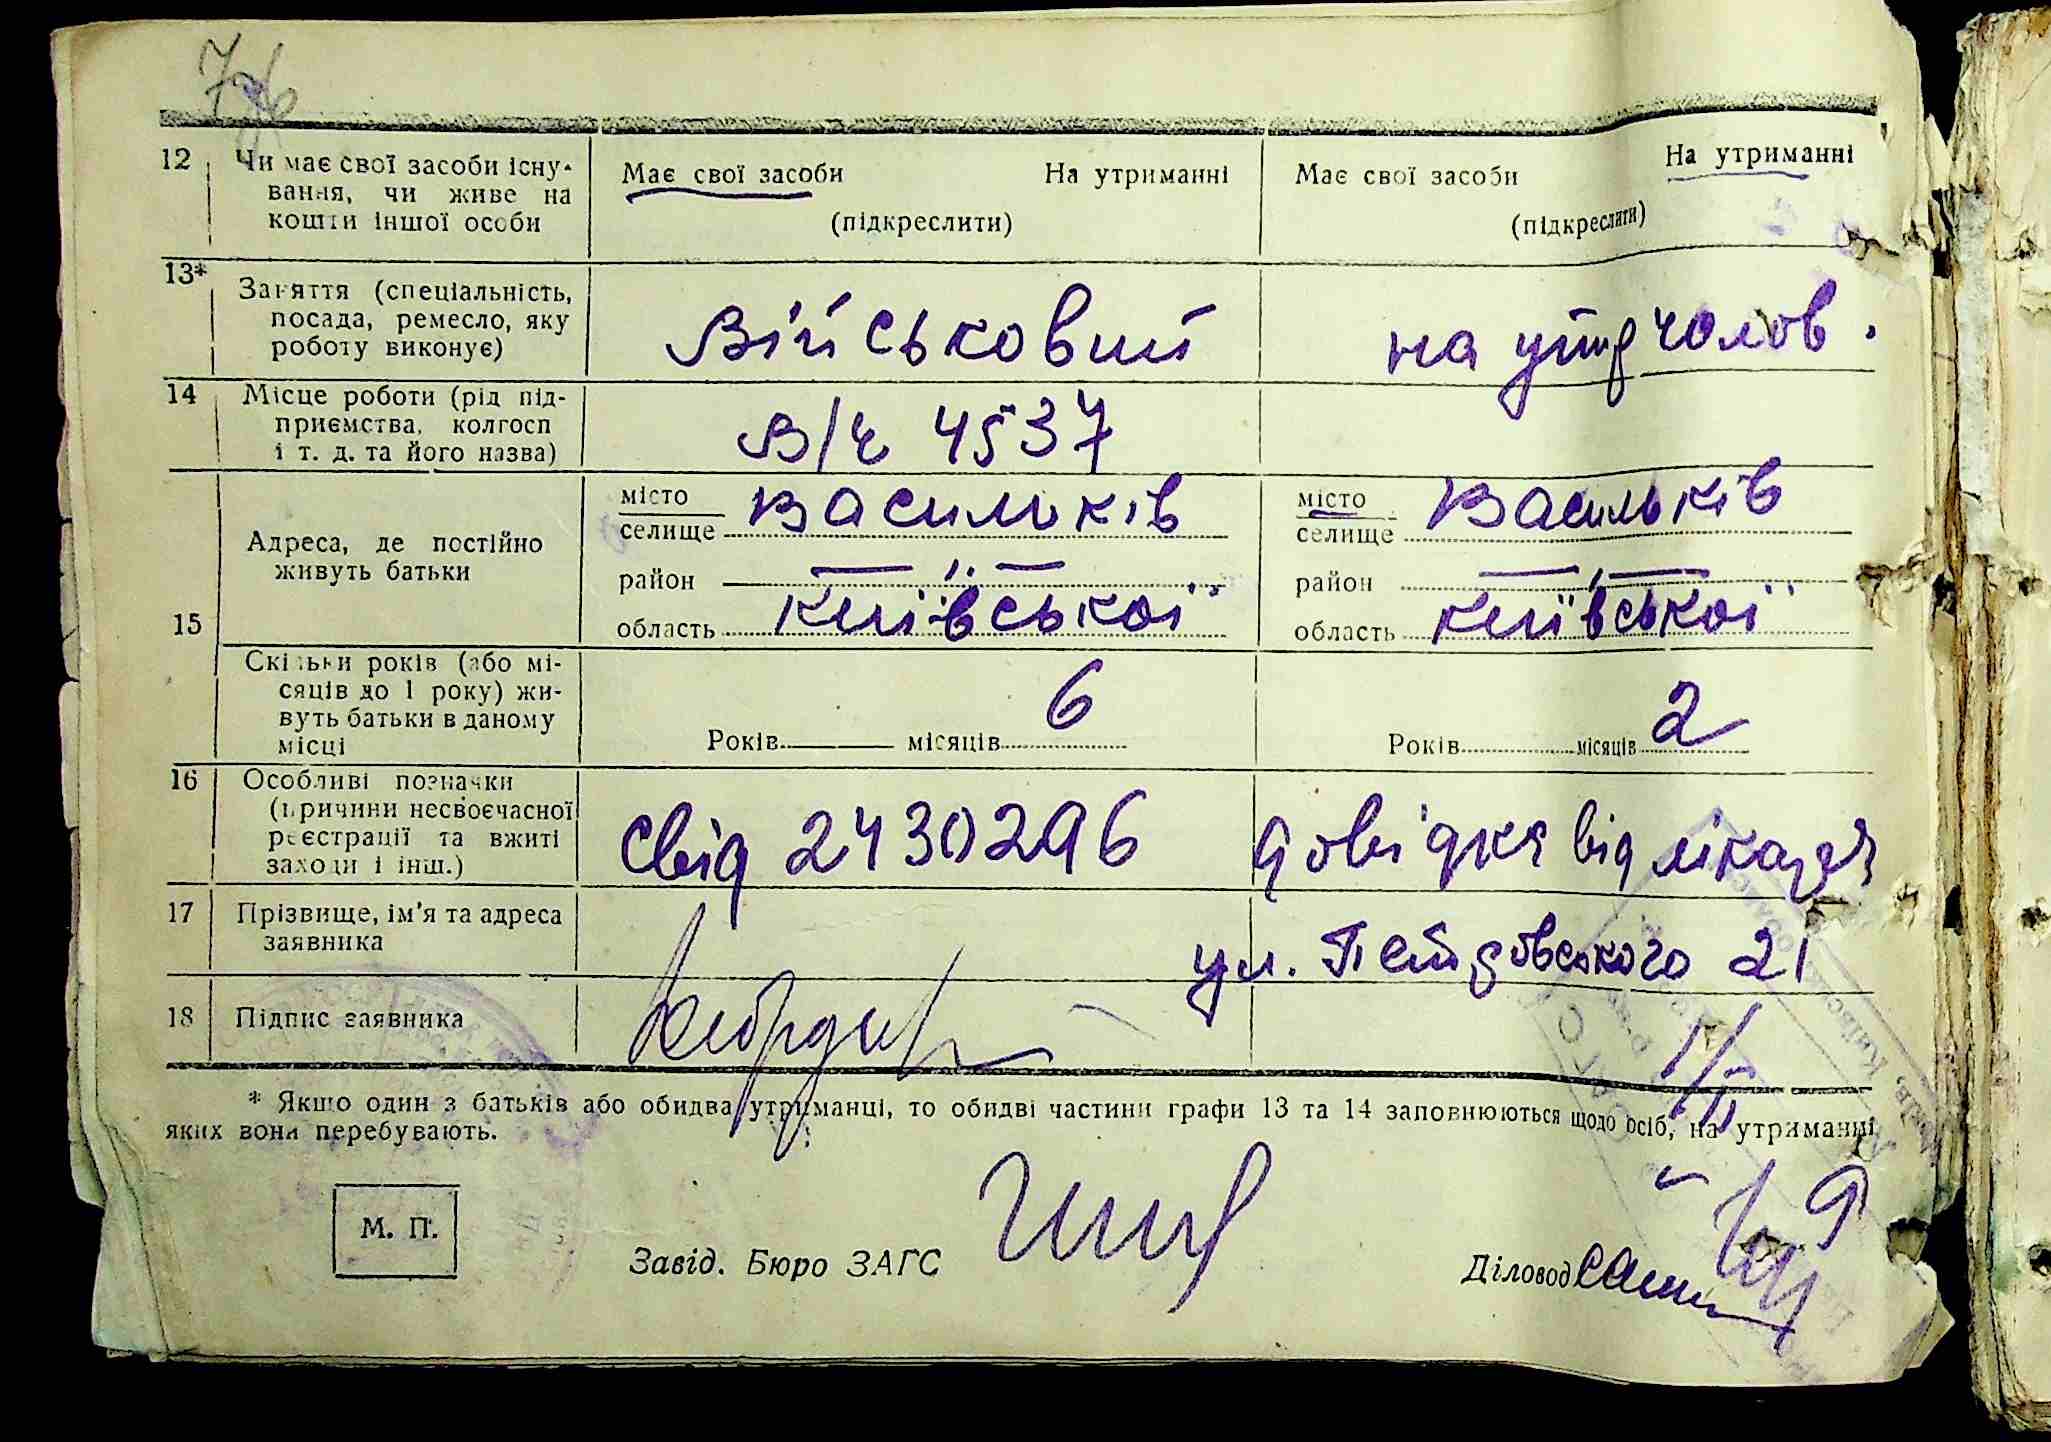 12 Чи має свої засоби існу-
вання, чи живе на
кошти іншої особи
Має свої засоби На утриманні
(підкреслити)
Має свої засоби На утриманні
(підкреслити)
13* Заняття (спеціальність,
посада, ремесло, яку
роботу виконує)
Військовий
на утр чолов.
14 Місце роботи (рід під-
приємства, колгосп
і т. д. та його назва)
В/ч 4537
15 Адреса, де постійно
живуть батьки
місто
селище Васильків
район — „ —
область київської
місто
селище Васильків
район — „ —
область київської
Скільки років (або мі-
сяців до 1 року) жи-
вуть батьки в даному
місці
Років місяців 6
Років місяців 2
16 Особливі позначки
(причини несвоєчасної
реєстрації та вжиті
заходи і інш.)
свід 2430296
довідка від лікаря
17 Прізвище, ім'я та адреса
заявника
ул. 21
18 Підпис заявника
* Якщо один з батьків або обидва утриманці, то обидві частини графи 13 та 14 заповнюються щодо осіб, на утриманні
яких вони перебувають.
М. П.
Завід. Бюро ЗАГС
Діловод